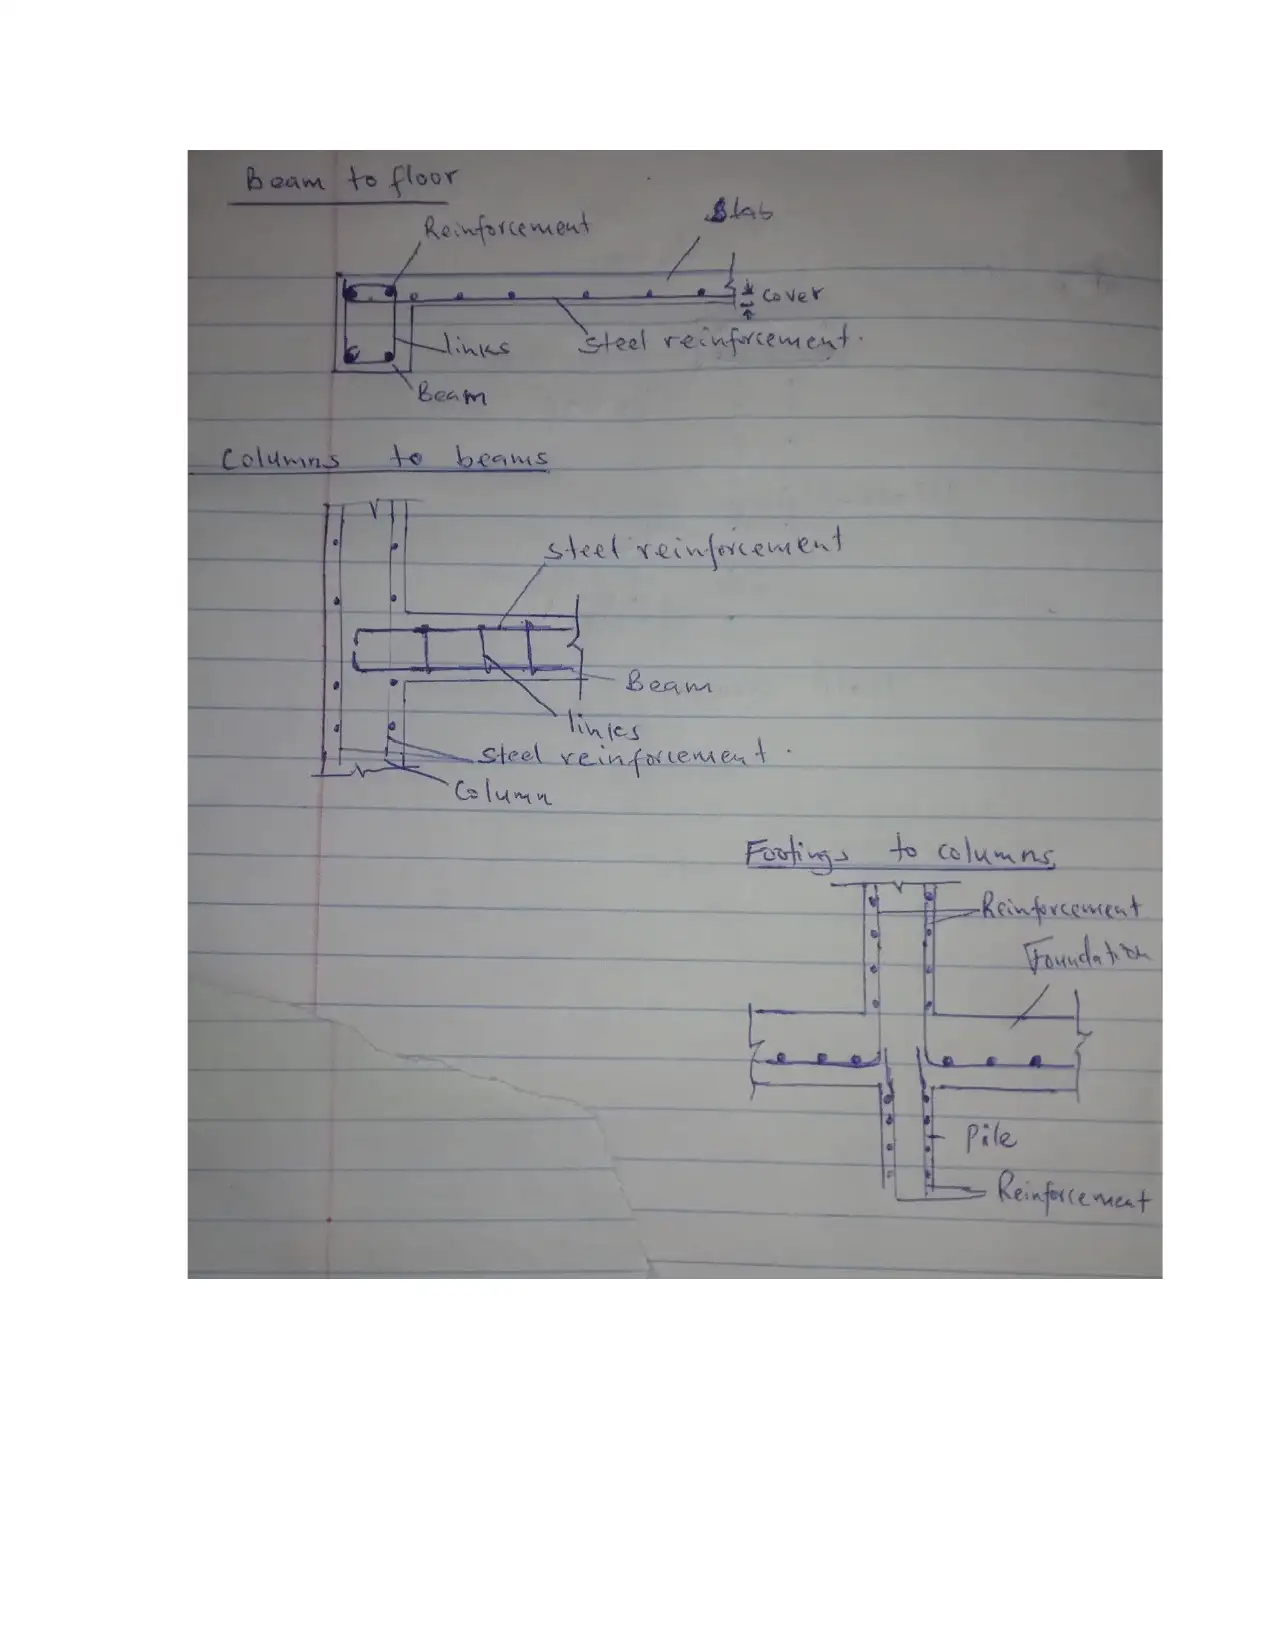 Beam to floor
Reinforcement
Slab
Cover
links
Steel reinforcement.
Beam
Columns to beams
Steel reinforcement
Beam
links
Steel reinforcement.
Column
Footings to columns
Reinforcement
Foundation
Pile
Reinforcement